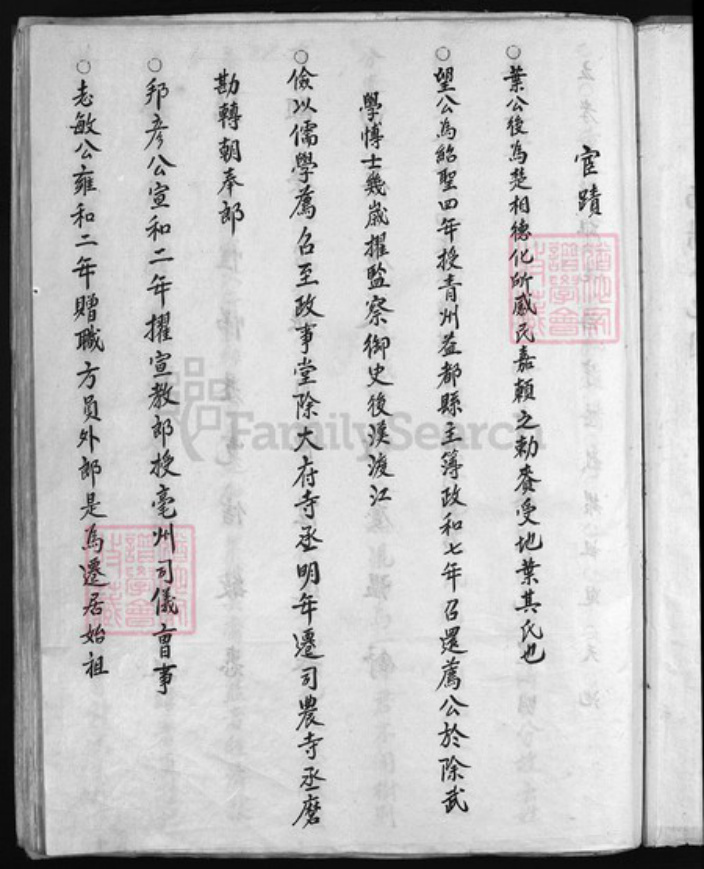 宦蹟
○葉公後為楚相德化所感民嘉賴之勅賚受地葉其氏也
○望公為紹聖四年授青州益都縣主簿政和七年召還薦公於除武
學博士幾歲擢監察御史後漢渡江
○儉以儒學薦召至政事堂除大府寺丞明年遷司農寺丞磨
勘轉朝奉郎
○邦彥公宣和二年擢宣教郎授亳州司儀曹事
○志敏公雍和二年贈職方員外郎是為遷居始祖
FamilySearch